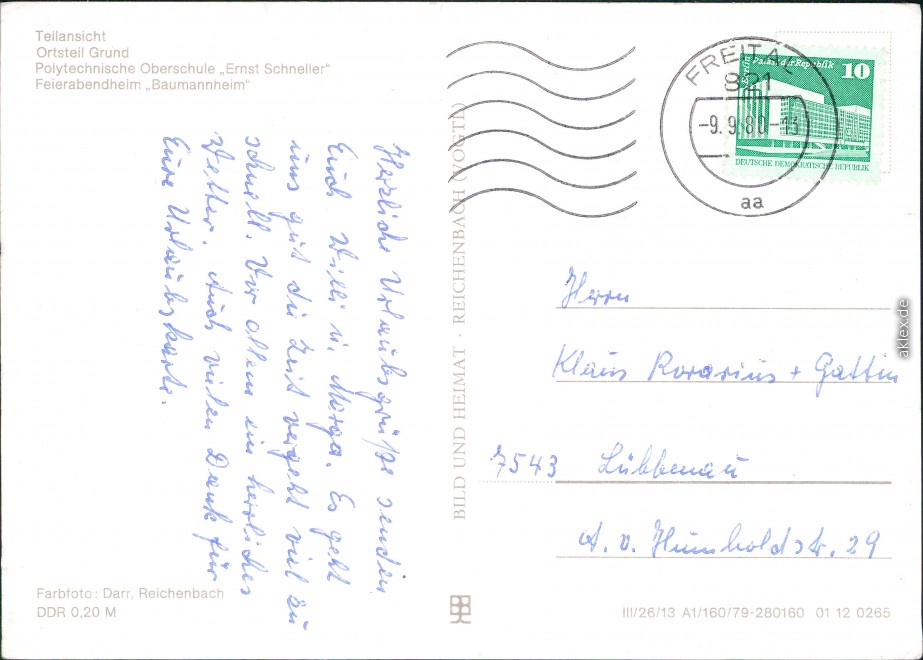 Teilansicht
Ortsteil Grund
Polytechnische Oberschule „Ernst Schneller"
Feierabendheim „Baumannheim"
Herzliche Urlaubsgrüße senden
Euch Willi u. Marga. Es geht
uns gut die Zeit vergeht viel zu
schnell. Vor allem ein herrliches
Wetter. Auch vielen Dank für
Eure Urlaubskarte.
Farbfoto: Darr, Reichenbach
DDR 0,20 M
BILD UND HEIMAT · REICHENBACH (VOGTL)
FREITAL
821
-9.9.80-13
aa
Palast der Republik
10
DEUTSCHE DEMOKRATISCHE REPUBLIK
Herrn
Klaus Rorarius + Gattin
7543 Lübbenau
A. v. Humboldstr. 29
III/26/13 A1/160/79-280160 01 12 0265
aklex.de